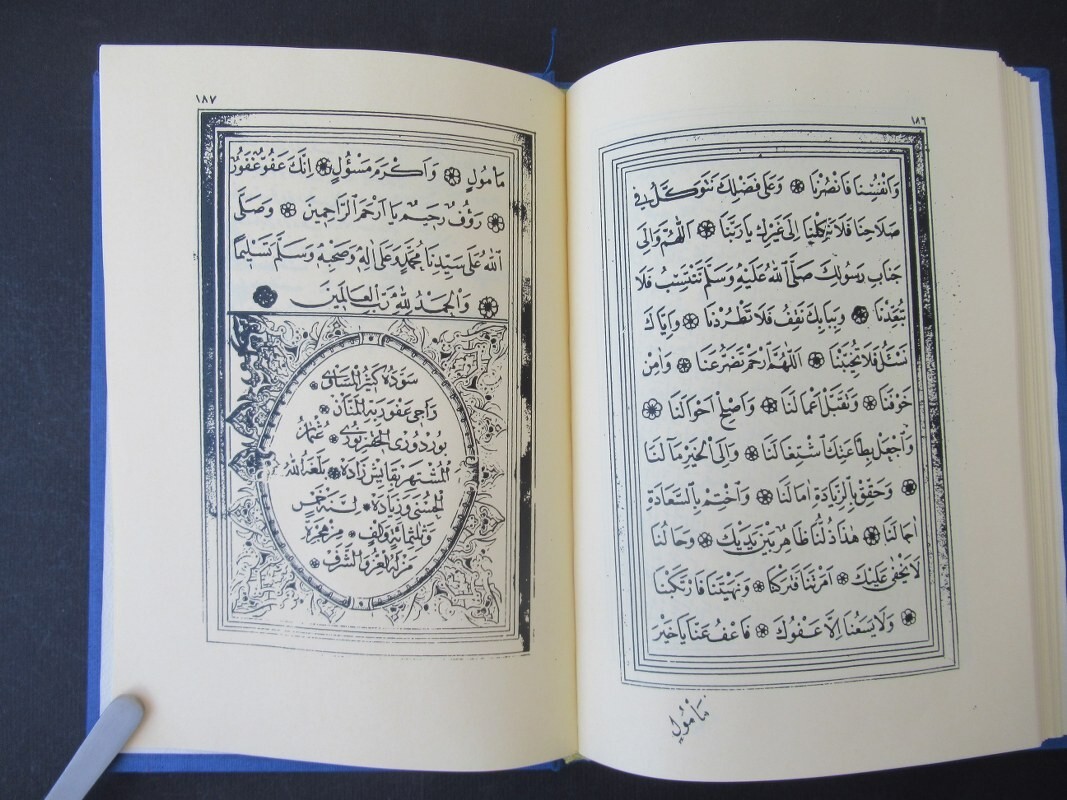 ١٨٦
وَانْفُسِنَا فَانْصُرْنَا وَعَلٰى فَضْلِكَ نَتَوَكَّلُ فِى
صَلَاحِنَا فَلَا تَكِلْنَا اِلٰى غَيْرِكَ يَا رَبَّنَا اَللّٰهُمَّ وَاِلٰى
جَنَابِ رَسُولِكَ صَلَّى اللّٰهُ عَلَيْهِ وَسَلَّمَ نَنْتَسِبُ فَلَا
تُبَعِّدْنَا وَبِبَابِكَ نَقِفُ فَلَا تَطْرُدْنَا وَاِيَّاكَ
نَسْئَلُ فَلَا تُخَيِّبْنَا اَللّٰهُمَّ ارْحَمْ تَضَرُّعَنَا وَاٰمِنْ
خَوْفَنَا وَتَقَبَّلْ اَعْمَالَنَا وَاَصْلِحْ اَحْوَالَنَا
وَاجْعَلْ بِطَاعَتِكَ اشْتِغَالَنَا وَاِلَى الْخَيْرِ مَاٰلَنَا
وَحَقِّقْ بِالزِّيَادَةِ اٰمَالَنَا وَاخْتِمْ بِالسَّعَادَةِ
اٰجَالَنَا هٰذَا ذُلُّنَا ظَاهِرٌ بَيْنَ يَدَيْكَ وَحَالُنَا
لَا يَخْفٰى عَلَيْكَ اَمَرْتَنَا فَتَرَكْنَا وَنَهَيْتَنَا فَارْتَكَبْنَا
وَلَا يَسَعُنَا اِلَّا عَفْوُكَ فَاعْفُ عَنَّا يَا خَيْرَ
مَأْمُولٍ
١٨٧
مَأْمُولٍ وَاَكْرَمَ مَسْؤُلٍ اِنَّكَ عَفُوٌّ غَفُورٌ
رَؤُفٌ رَحِيمٌ يَا اَرْحَمَ الرَّاحِمِينَ وَصَلَّى
اللّٰهُ عَلٰى سَيِّدِنَا مُحَمَّدٍ وَعَلٰى اٰلِهٖ وَصَحْبِهٖ وَسَلَّمَ تَسْلِيمًا
وَالْحَمْدُ لِلّٰهِ رَبِّ الْعَالَمِينَ
سَوَّدَهُ كَثِيرُ الْمَسَاوِى
وَرَاجِى عَفْوِ رَبِّهِ الْمَنَّانِ
بوردورى عُثْمَانُ
الْمُشْتَهِرُ بِقَايِشْ زَادَه بَلَّغَهُ اللّٰهُ
الْحُسْنٰى وَزِيَادَة لِسَنَةِ خَمْسٍ
وَثَلٰثِمِائَةٍ وَاَلْفٍ مِنْ هِجْرَةِ
مَنْ لَهُ الْعِزُّ وَالشَّرَفُ